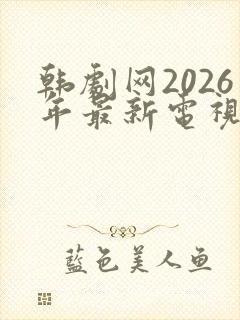 韩劇网2026
年最新電視
藍色美人鱼